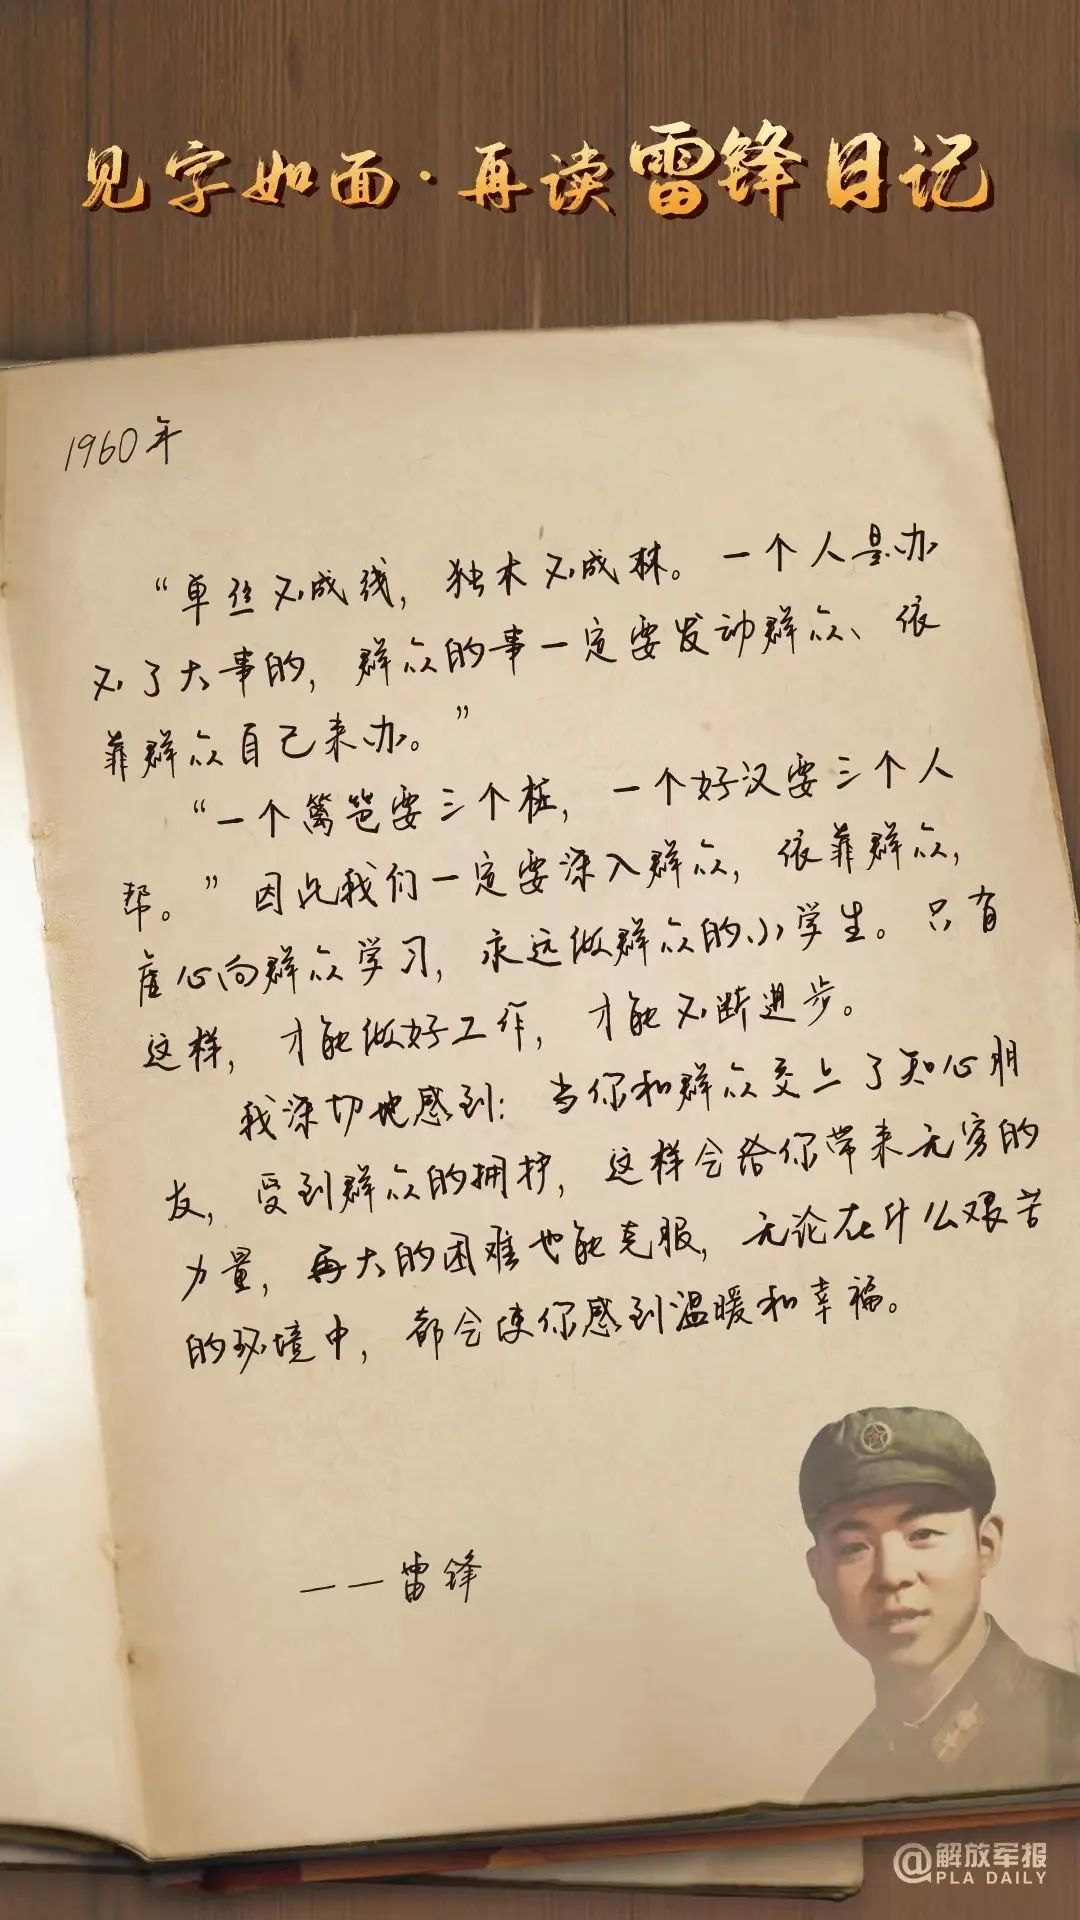 见字如面·再读雷锋日记
1960年
“单丝不成线，独木不成林。一个人是办
不了大事的，群众的事一定要发动群众、依
靠群众自己来办。”
“一个篱笆要三个桩，一个好汉要三个人
帮。”因此我们一定要深入群众，依靠群众，
虚心向群众学习，永远做群众的小学生。只有
这样，才能做好工作，才能不断进步。
我深切地感到：当你和群众交上了知心朋
友，受到群众的拥护，这样会给你带来无穷的
力量，再大的困难也能克服，无论在什么艰苦
的环境中，都会使你感到温暖和幸福。
——雷锋
@解放军报
PLA DAILY